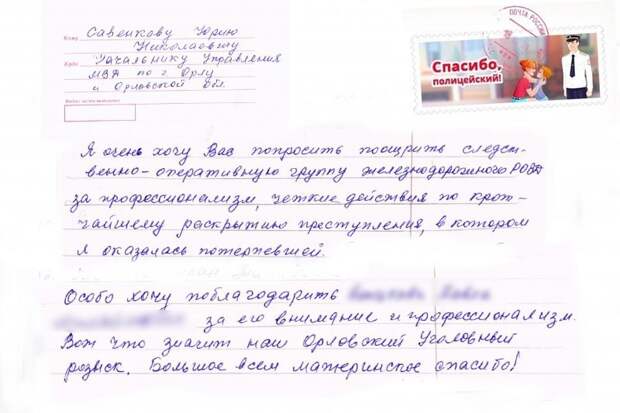 Кому Савенкову Юрию
Николаевичу
Куда Начальнику Управления
МВД по г. Орлу
и Орловской обл.
ПОЧТА РОССИИ
Спасибо,
полицейский!
Я очень хочу Вас попросить поощрить следст-
венно-оперативную группу железнодорожного РОВД
за профессионализм, четкие действия по кротчайшему раскрытию преступления, в котором
я оказалась потерпевшей.
Особо хочу поблагодарить
за его внимание и профессионализм.
Вот что значит наш Орловский Уголовный
розыск. Большое всем материнское спасибо!